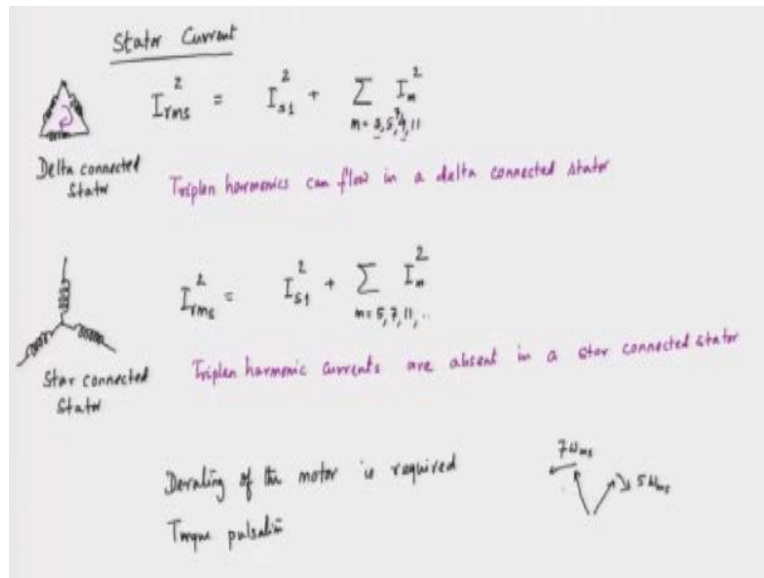 Stator Current
I_rms² = I_s1² + Σ I_m²
m = 3,5,7,9,11
Delta connected
Stator
Triplen harmonics can flow in a delta connected stator
I_rms² = I_s1² + Σ I_m²
m = 5,7,11,..
Star connected
Stator
Triplen harmonic currents are absent in a star connected stator
Derating of the motor is required
Torque pulsatin
7ω_ms
5ω_ms